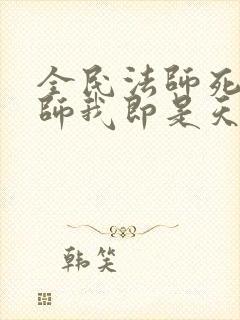 全民法師死
師我即是天
韩笑